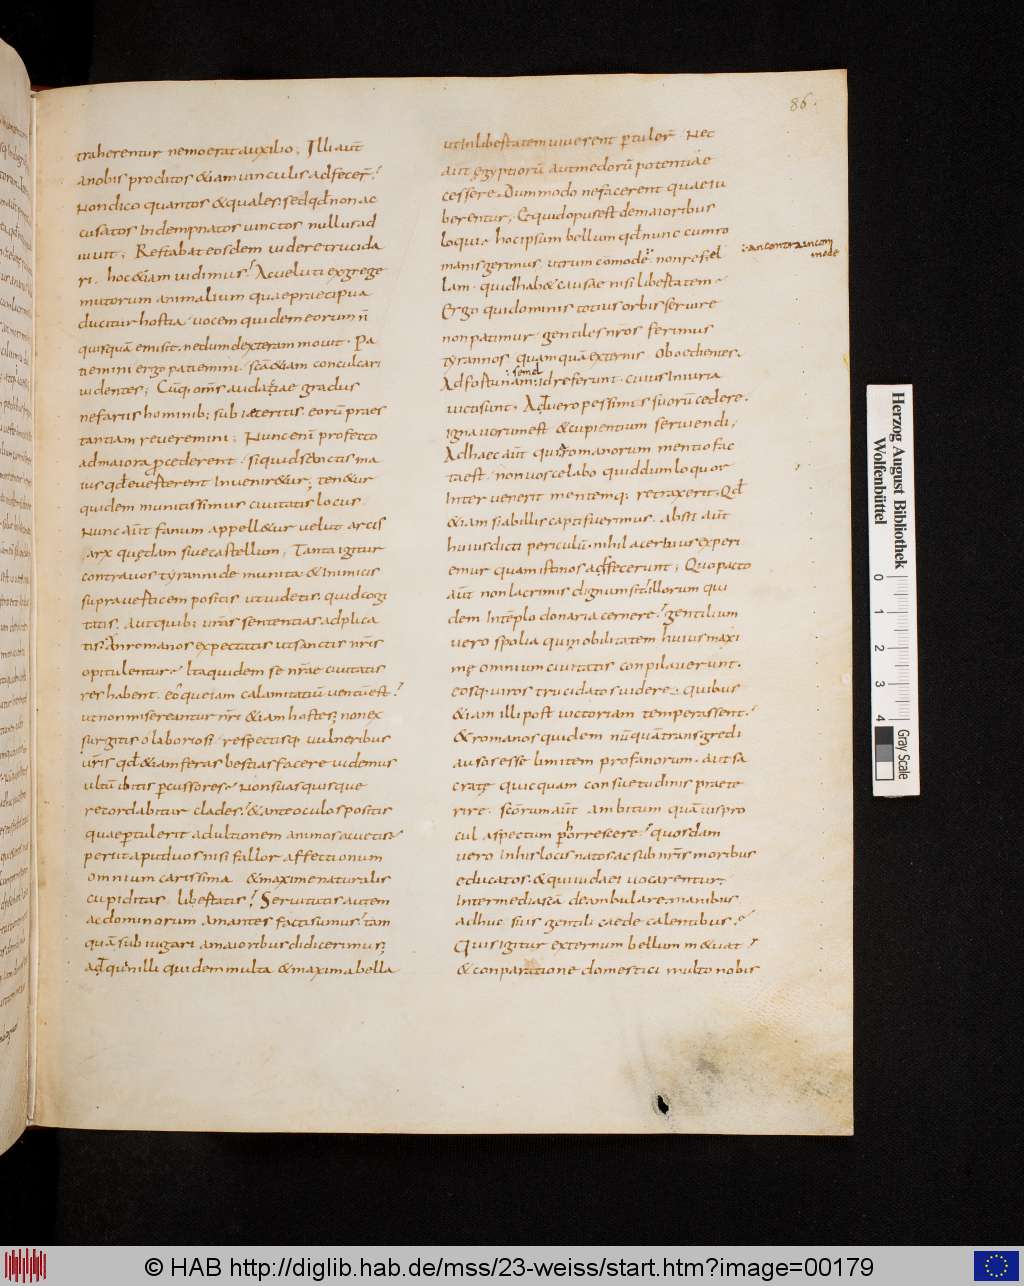 86.
traherentur nemo erat auxilio; Illi aut̄
a nobis proditos &iam vinculis adfecer̄;
Non dico quantos & quales sed qđ non ac
cusatos Indempnatos vinctos nullus ad
iuuit; Restabat eosdem videre trucida
ri. hoc &iam uidimus; Ac veluti ex grege
mutorum animalium quae praecipua
ducitur hostia. vocem quidem eorum n̄
quisquā emisit. nedum dexteram mouit. Pa
tiemini ergo patiemini. sc̄a &iam conculcari
uidentes; Cūq; om̄s audatiae gradus
nefariis hominib; subieceritis. eorū praes
tantiam reveremini; Nunc enī profecto
ad maiora p̱cederent. si quid sanctis ma
ius qđ everterent Invenir&ur; ten&ur
quidem munitissimus civitatis locus.
Nunc aūt fanum appell&ur velut arcis
arx quędam sive castellum; Tanta igitur
contra vos tyrannide munita & Inimicis
supra verticem positis ut videtis. quid cogi
tatis. aut quib; vr̄is sententias adplica
tis. An romanos expectatis ut sanctis nr̄is
opitulentur. Ita quidem se nr̄ae civitatis
res habent. eoq̄ue iam calamitatiū ventū est;
ut non misereantur nr̄i &iam hostes; non ex
surgitis o laboriosi. respectisq; vulneribus
vr̄is qđ &iam feras bestias facere videmus
ultū ibitis p̱cussores. Non suas quisque
recordabitur clades; & ante oculos positis
quae p̱tulerit ad ultionem animos acuetis;
periit aput vos nisi fallor affectionum
omnium carissima & maxime naturalis
cupiditas libertatis; Servitutis autem
ac dominorum amantes facti sumus; tam
quā subiugari a maioribus didicerimus;
Ad qui nilli quidem multa & maxima bella
ut In libertatem viverent p̱tuler̄. Nec
aut ęgyptiorū aut medorū potentiae
cessere. Dum modo ne facerent quae iu
berentur; Ec quid opus est de maioribus
loqui. hoc ipsum bellum qđ nunc cum ro
manis gerimus. utrum comode. non refel
:· an contra incom
mode
lam. quid hab& causae nisi libertatem.
Ergo qui dominis totius orbis servire
non patimur. gentiles nr̄os ferimus
tyrannos quam quā externis oboedientes.
:· semel
Ad fortunam id referunt. cuius Iniuria
victi sunt. Ad vero pessimis suorū cedere.
ignavorum est & cupientium serviendi;
Ad haec aūt qui romanorum mentio fac
ta est. non vos celabo quid dum loquor
Inter venerit mentemq; retraxerit; Qđ
&iam si ab illis capti fuerimus. absit aūt
huius dicti periculū. nihil acerbius experi
emur quam isti nos adfecerunt; Quo pacto
aūt non lacrimis dignum sit; illorum qui
dem In tēplo donaria cernere; gentilium
vero spolia qui nobilitatem huius maxi
mę omnium civitatis conpilaverunt.
eosq; viros trucidatos videre. quibus
&iam illi post victoriam temperassent;
& romanos quidem nūquā transgredi
ausos esse limitem profanorum. aut sa
cratę quicquam consuetudinis praete
rire. sc̄orum aūt ambitum quāvis pro
cul aspectum p̱horrescere; quosdam
vero In his locis natos ac sub nr̄is moribus
educatos. & qui iudaei vocarentur;
Inter media sc̄a deambulare. manibus
adhuc suis gentili caede calentibus.
Quis igitur externum bellum m&uat;
& conparatione domestici multo nobis
Herzog August Bibliothek
Wolfenbüttel
0 1 2 3 4
Gray Scale
© HAB http://diglib.hab.de/mss/23-weiss/start.htm?image=00179